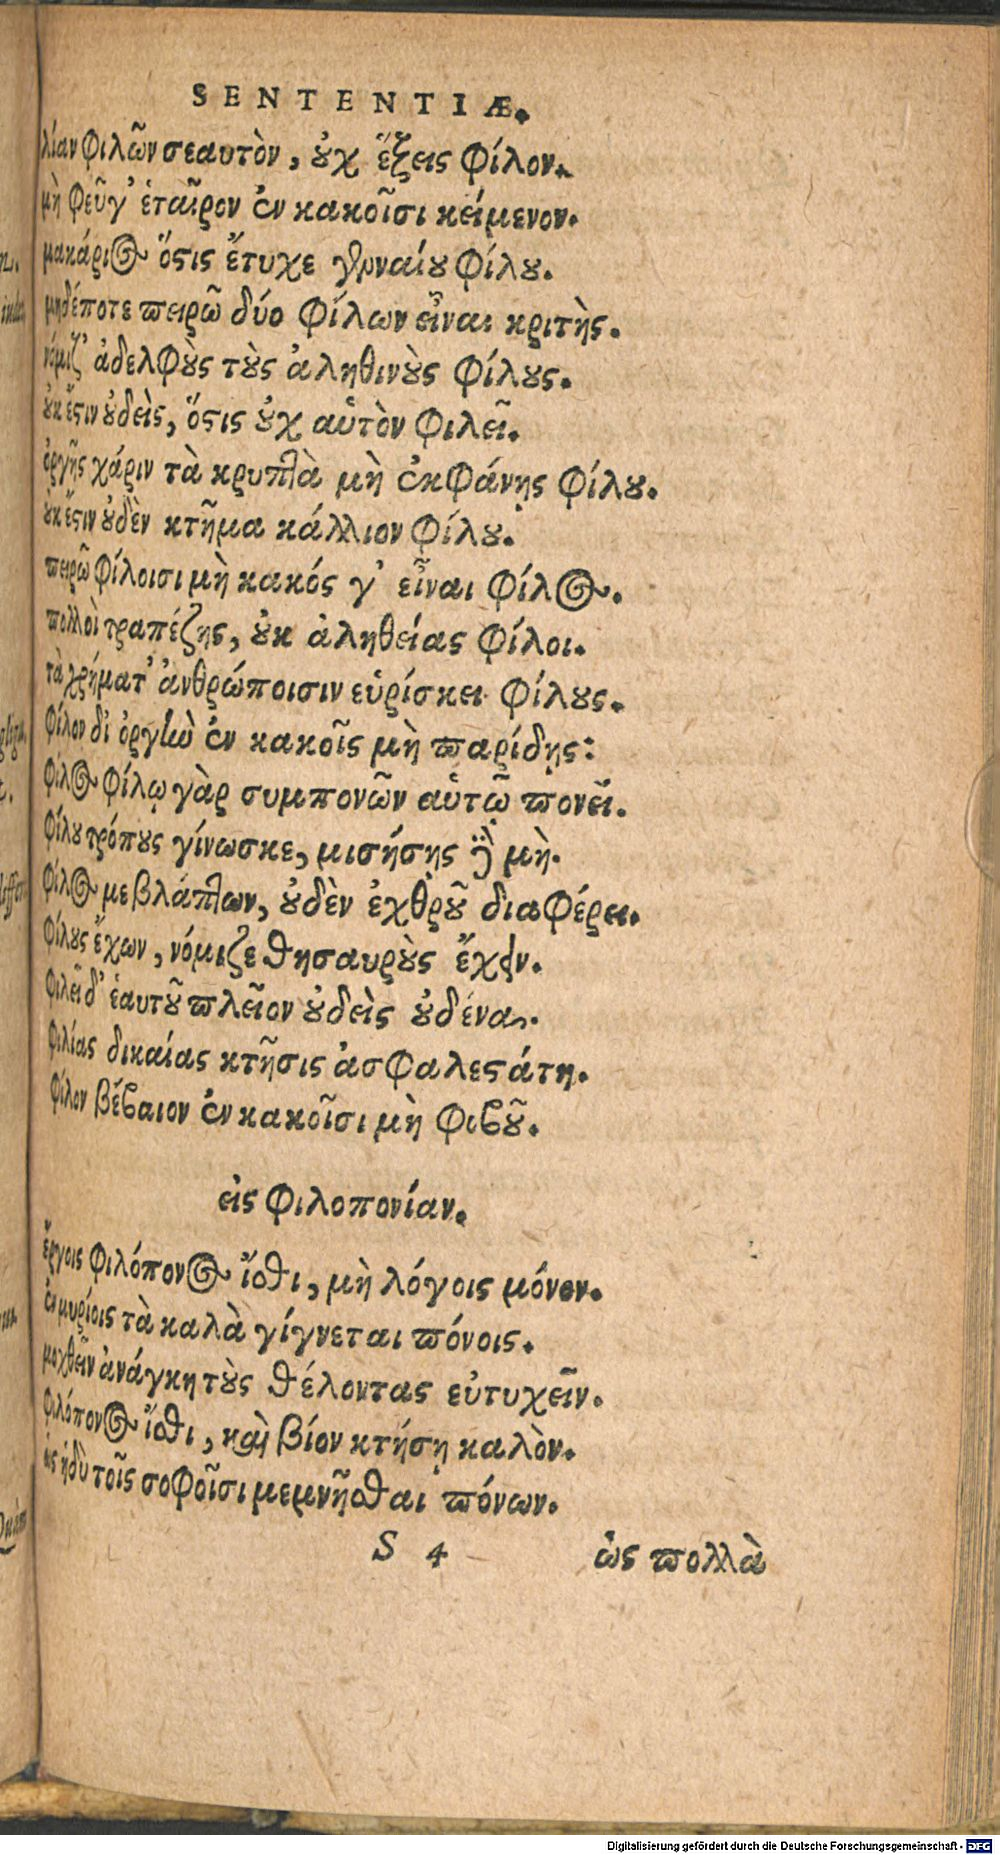 SENTENTIÆ.
λίαν φιλῶν σεαυτὸν, οὐχ ἕξεις φίλον.
μὴ φεῦγ' ἑταῖρον ἐν κακοῖσι κείμενον.
μακάριος ὅστις ἔτυχε γενναίου φίλου.
μηδέποτε πειρῶ δύο φίλων εἶναι κριτὴς.
νόμιζ' ἀδελφοὺς τοὺς ἀληθινοὺς φίλους.
οὐκ ἔστιν οὐδεὶς, ὅστις οὐχ αὑτὸν φιλεῖ.
ὀργῆς χάριν τὰ κρυπτὰ μὴ ἐκφάνῃς φίλου.
οὐκ ἔστιν οὐδὲν κτῆμα κάλλιον φίλου.
πειρῶ φίλοισι μὴ κακός γ' εἶναι φίλος.
πολλοὶ τραπέζης, οὐκ ἀληθείας φίλοι.
τὰ χρήματ' ἀνθρώποισιν εὑρίσκει φίλους.
φίλον δι' ὀργὴν ἐν κακοῖς μὴ παρίδῃς:
φίλος φίλῳ γὰρ συμπονῶν αὑτῷ πονεῖ.
φίλου τρόπους γίνωσκε, μισήσῃς δὲ μὴ.
φίλος με βλάπτων, οὐδὲν ἐχθροῦ διαφέρει.
φίλους ἔχων, νόμιζε θησαυροὺς ἔχειν.
φιλεῖ δ' ἑαυτοῦ πλεῖον οὐδεὶς οὐδένα.
φιλίας δικαίας κτῆσις ἀσφαλεστάτη.
φίλον βέβαιον ἐν κακοῖσι μὴ φοβοῦ.
εἰς φιλοπονίαν.
ἔργοις φιλόπονος ἴσθι, μὴ λόγοις μόνον.
ἐν μυρίοις τὰ καλὰ γίγνεται πόνοις.
μοχθεῖν ἀνάγκη τοὺς θέλοντας εὐτυχεῖν.
φιλόπονος ἴσθι, καὶ βίον κτήσῃ καλὸν.
ὡς ἡδὺ τοῖς σοφοῖσι μεμνῆσθαι πόνων.
S 4 ὡς πολλὰ
Digitalisierung gefördert durch die Deutsche Forschungsgemeinschaft - DFG